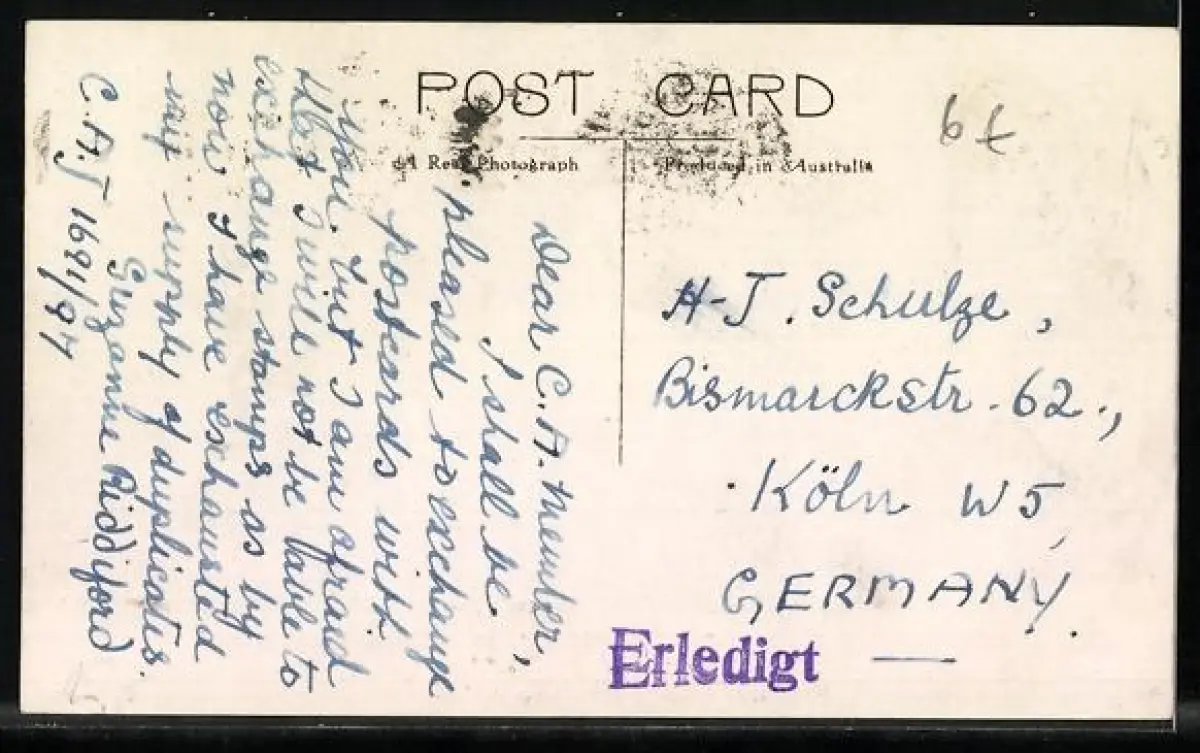 POST CARD
A Real Photograph
Produced in Australia
6£
Dear C.A. Member,
I shall be
pleased to exchange
postcards with
you. but I am afraid
that I will not be able to
exchange stamps as by
now I have exhausted
my supply of duplicates.
Suzanne Riddiford
C.A.J 1691/97
H-J. Schulze,
Bismarckstr. 62.,
Köln W5,
GERMANY.
Erledigt —